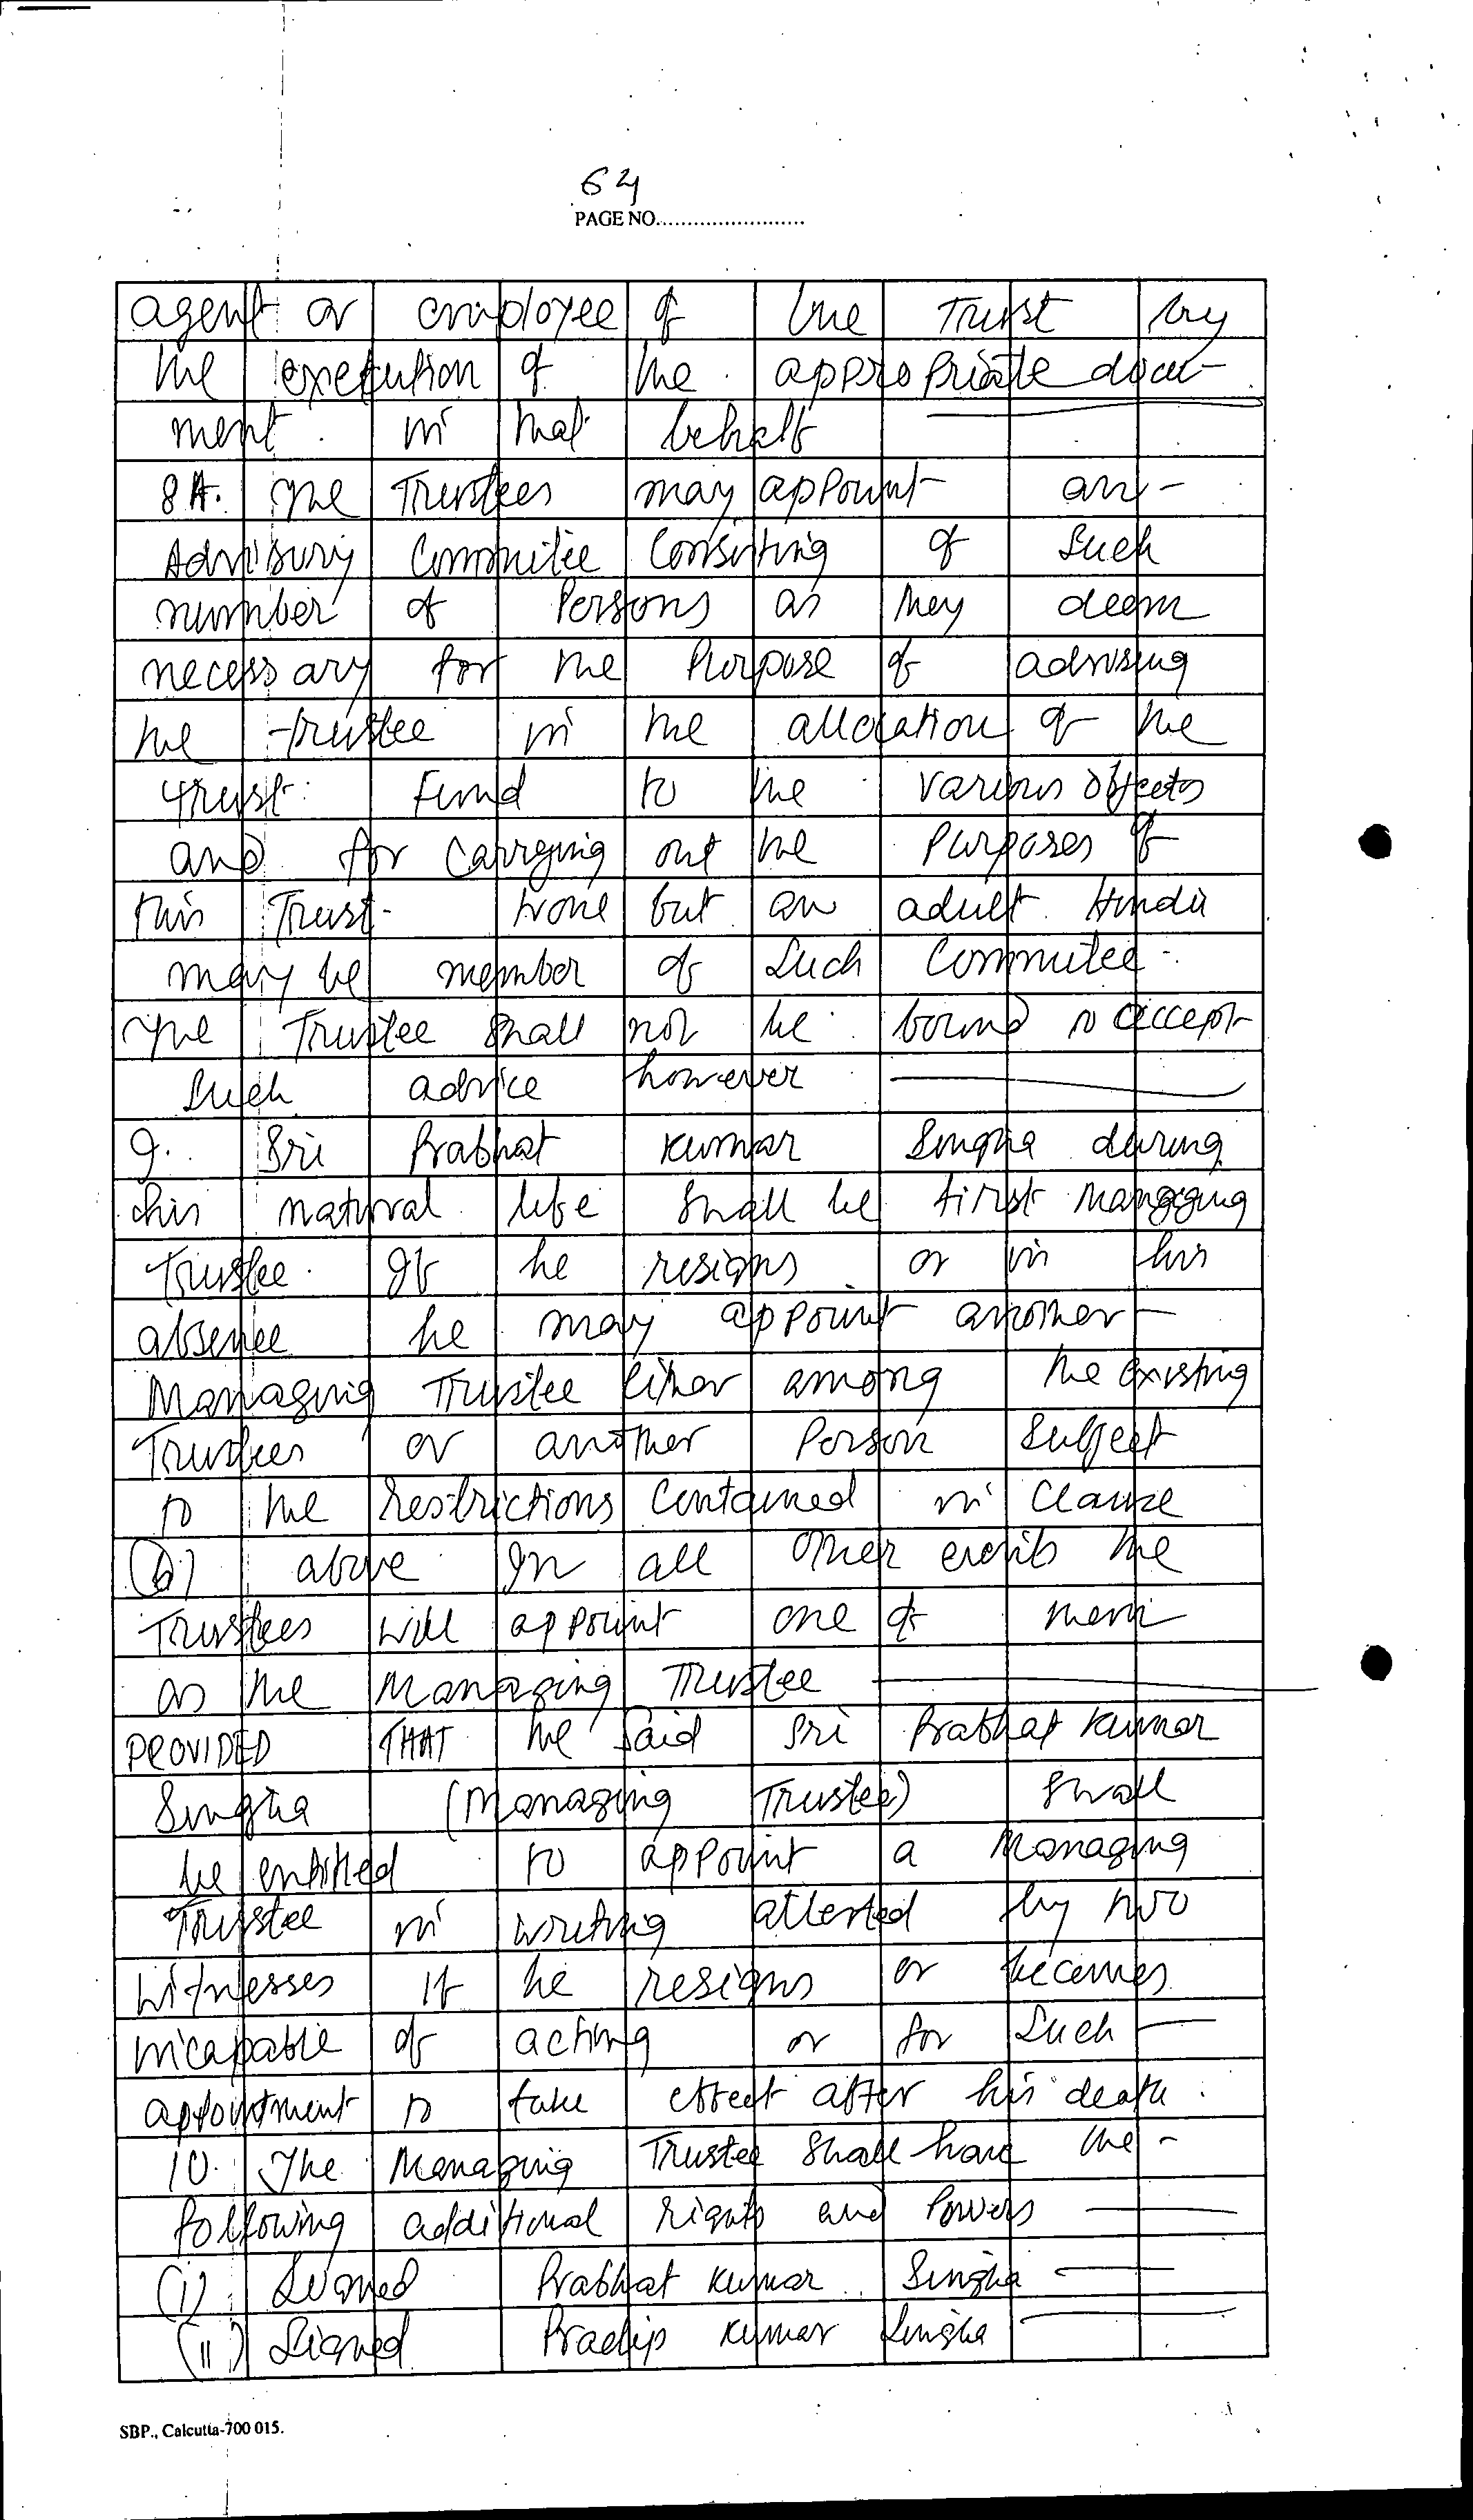 64
PAGE NO.........................
agent or employee of the Trust by
the execution of the appropriate docu-
ment in that behalf
8A. The Trustees may appoint an -
Advisory Committee Consisting of Such
number of Persons as they deem
necessary for the Purpose of advising
the trustee in the allocation of the
trust Fund to the various objects
and for carrying out the Purposes of
this Trust. None but an adult Hindu
may be member of Such Committee -
The Trustee Shall not be bound to accept
Such advice however
9. Sri Prabhat Kumar Singha during
his natural life Shall be first Managing
Trustee. If he resigns or in his
absence he may appoint another -
Managing Trustee either among the existing
Trustees or another Person Subject
to the restrictions Contained in Clause
above In all other events the
Trustees will appoint one of them
as the Managing Trustee
PROVIDED THAT the Said Sri Prabhat Kumar
Singha (Managing Trustee) Shall
be entitled to appoint a Managing
Trustee in writing attested by two
Witnesses if he resigns or becomes
incapable of acting or for Such
appointment to take effect after his death.
10. The Managing Trustee Shall have the -
following additional rights and Powers
(i) Signed Prabhat Kumar Singha
(ii) Signed Pradip Kumar Singha
SBP., Calcutta-700 015.